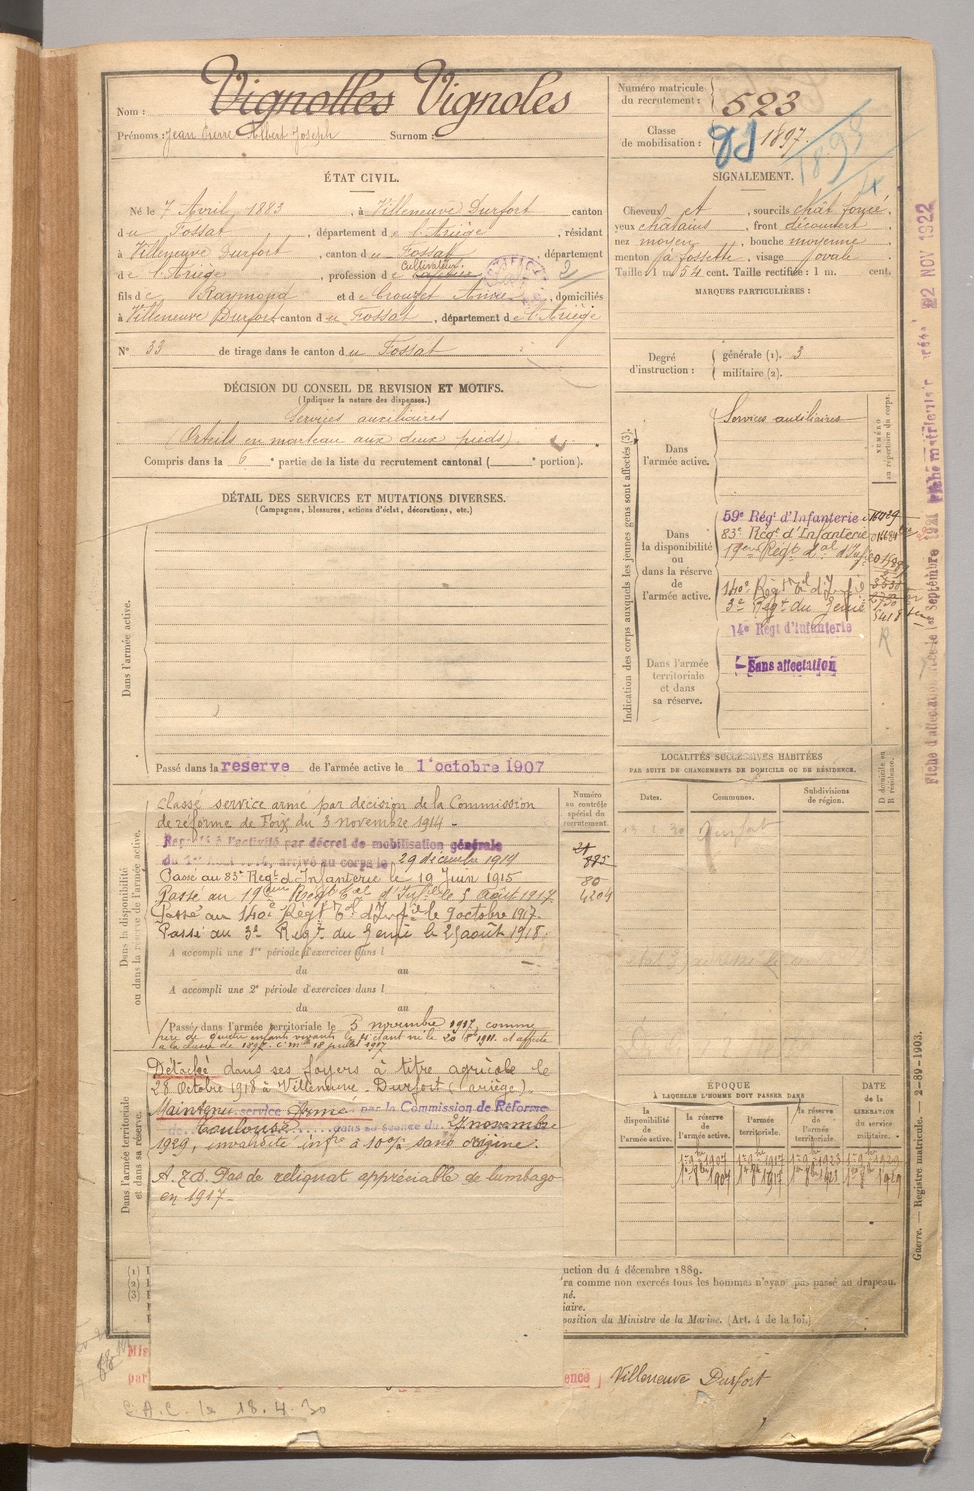 Nom : Vignolles Vignoles
Prénoms : Jean Pierre Albert Joseph Surnom :
Numéro matricule du recrutement : 523
Classe de mobilisation : 1897.
1893
ÉTAT CIVIL.
Né le 7 Avril 1883, à Villeneuve Durfort canton
du Fossat, département de l'Ariège, résidant
à Villeneuve Durfort, canton du Fossat département
de l'Ariège, profession de Cultivateur
fils de Raymond et de Crouzet Anne, domiciliés
à Villeneuve Durfort canton du Fossat, département de l'Ariège
N° 33 de tirage dans le canton du Fossat
SIGNALEMENT.
Cheveux et, sourcils chât foncé.
yeux châtains, front découvert
nez moyen, bouche moyenne
menton à fossette, visage ovale
Taille : 1 m 54 cent. Taille rectifiée : 1 m. cent.
MARQUES PARTICULIÈRES :
Degré d'instruction : générale (1). 3
militaire (2).
DÉCISION DU CONSEIL DE REVISION ET MOTIFS.
(Indiquer la nature des dispenses.)
Services auxiliaires
(Orteils en marteau aux deux pieds)
Compris dans la 6e partie de la liste du recrutement cantonal ( e portion).
DÉTAIL DES SERVICES ET MUTATIONS DIVERSES.
(Campagnes, blessures, actions d'éclat, décorations, etc.)
Dans l'armée active.
Passé dans la reserve de l'armée active le 1er octobre 1907
Indication des corps auxquels les jeunes gens sont affectés (3).
NUMÉRO au répertoire du corps.
Dans l'armée active.
Services auxiliaires
Dans la disponibilité ou dans la réserve de l'armée active.
59e Régt d'Infanterie
83e Régt d'Infanterie
19eme Régt tal d'Inf
140e Régt tal d'Infie
3e Régt du Genie
14e Régt d'Infanterie
Dans l'armée territoriale et dans sa réserve.
Sans affectation
LOCALITÉS SUCCESSIVES HABITÉES
PAR SUITE DE CHANGEMENTS DE DOMICILE OU DE RÉSIDENCE.
Dates. Communes. Subdivisions de région. D domicile ou R résidence.
Durfort
Dans la disponibilité ou dans la réserve de l'armée active.
Numéro au contrôle spécial du recrutement.
Classé service armé par décision de la Commission
de réforme de Foix du 3 novembre 1914 -
Rappelé à l'activité par décret de mobilisation générale
du 1er Août 1914, arrivé au corps le 29 décembre 1914
Passé au 83e Régt d'Infanterie le 19 Juin 1915
Passé au 19eme Régt tal d'Infie le 5 Août 1917.
Passé au 140e Régt tal d'Infie le 9 octobre 1917.
Passé au 3e Régt du Genie le 25 août 1918.
A accompli une 1re période d'exercices dans l
du au
A accompli une 2e période d'exercices dans l
du au
Passé dans l'armée territoriale le 5 novembre 1917, comme
père de quatre enfants vivants le 4e étant né le 20 8bre 1911. et affecté
à la classe de 1897. C.M. 18 juillet 1917
Dans l'armée territoriale et dans sa réserve.
Détaché dans ses foyers à titre agricole le
28 Octobre 1918 à Villeneuve-Durfort (Ariège).
Maintenu service Armé par la Commission de Réforme
de Toulouse dans sa séance du novembre
1929, invalidité infre à 10% sans origine.
A.7d. Pas de reliquat appréciable de lumbago
en 1917-
ÉPOQUE
À LAQUELLE L'HOMME DOIT PASSER DANS
la disponibilité de l'armée active. la réserve de l'armée active. l'armée territoriale. la réserve de l'armée territoriale.
DATE de la LIBÉRATION du service militaire.
1er 8bre 1907 1er 8bre 1917
(1)
(2)
(3)
uction du 4 décembre 1889.
ra comme non exercés tous les hommes n'ayant pas passé au drapeau.
né.
iaire.
position du Ministre de la Marine. (Art. 4 de la loi.)
Mis
par
ence Villeneuve Durfort
C.A.C. le 18.4.30
Guerre. — Registre matricule. — 2-89-1903.
22 NOV 1922